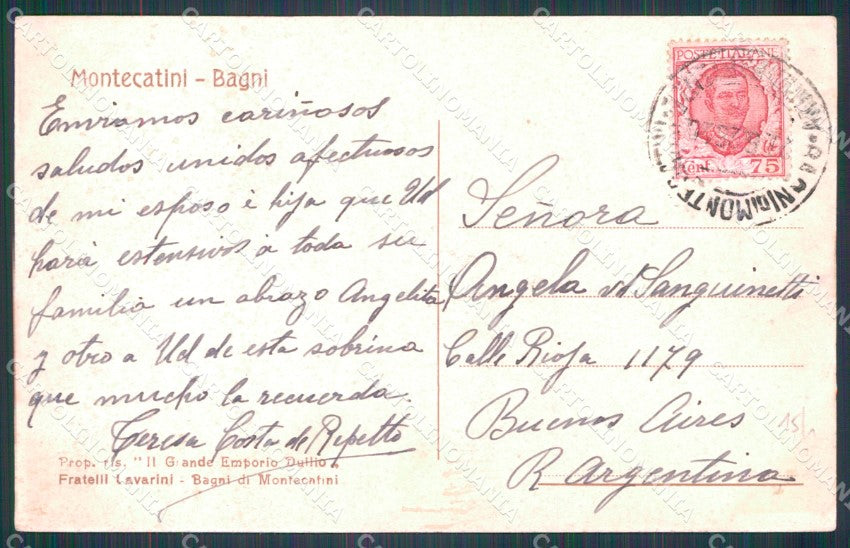 Montecatini - Bagni
Enviamos cariñosos
saludos unidos afectuosos
de mi esposo é hija que Ud
hará estensivos a toda su
familia un abrazo Angelita
y otro a Ud de esta sobrina
que mucho la recuerda.
Teresa Costa de Repetto
Prop. ris. "Il Grande Emporio Duilio"
Fratelli Lavarini - Bagni di Montecatini
POSTE ITALIANE
Cent. 75
BAGNI DI MONTE
Señora
Angela vd Sanguinetti
Calle Rioja 1179
Buenos Aires
R Argentina
15/
CARTOLINOMANIA